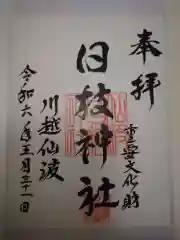 奉拝
重要文化財
日枝神社
川越仙波
令和六年五月三十一日